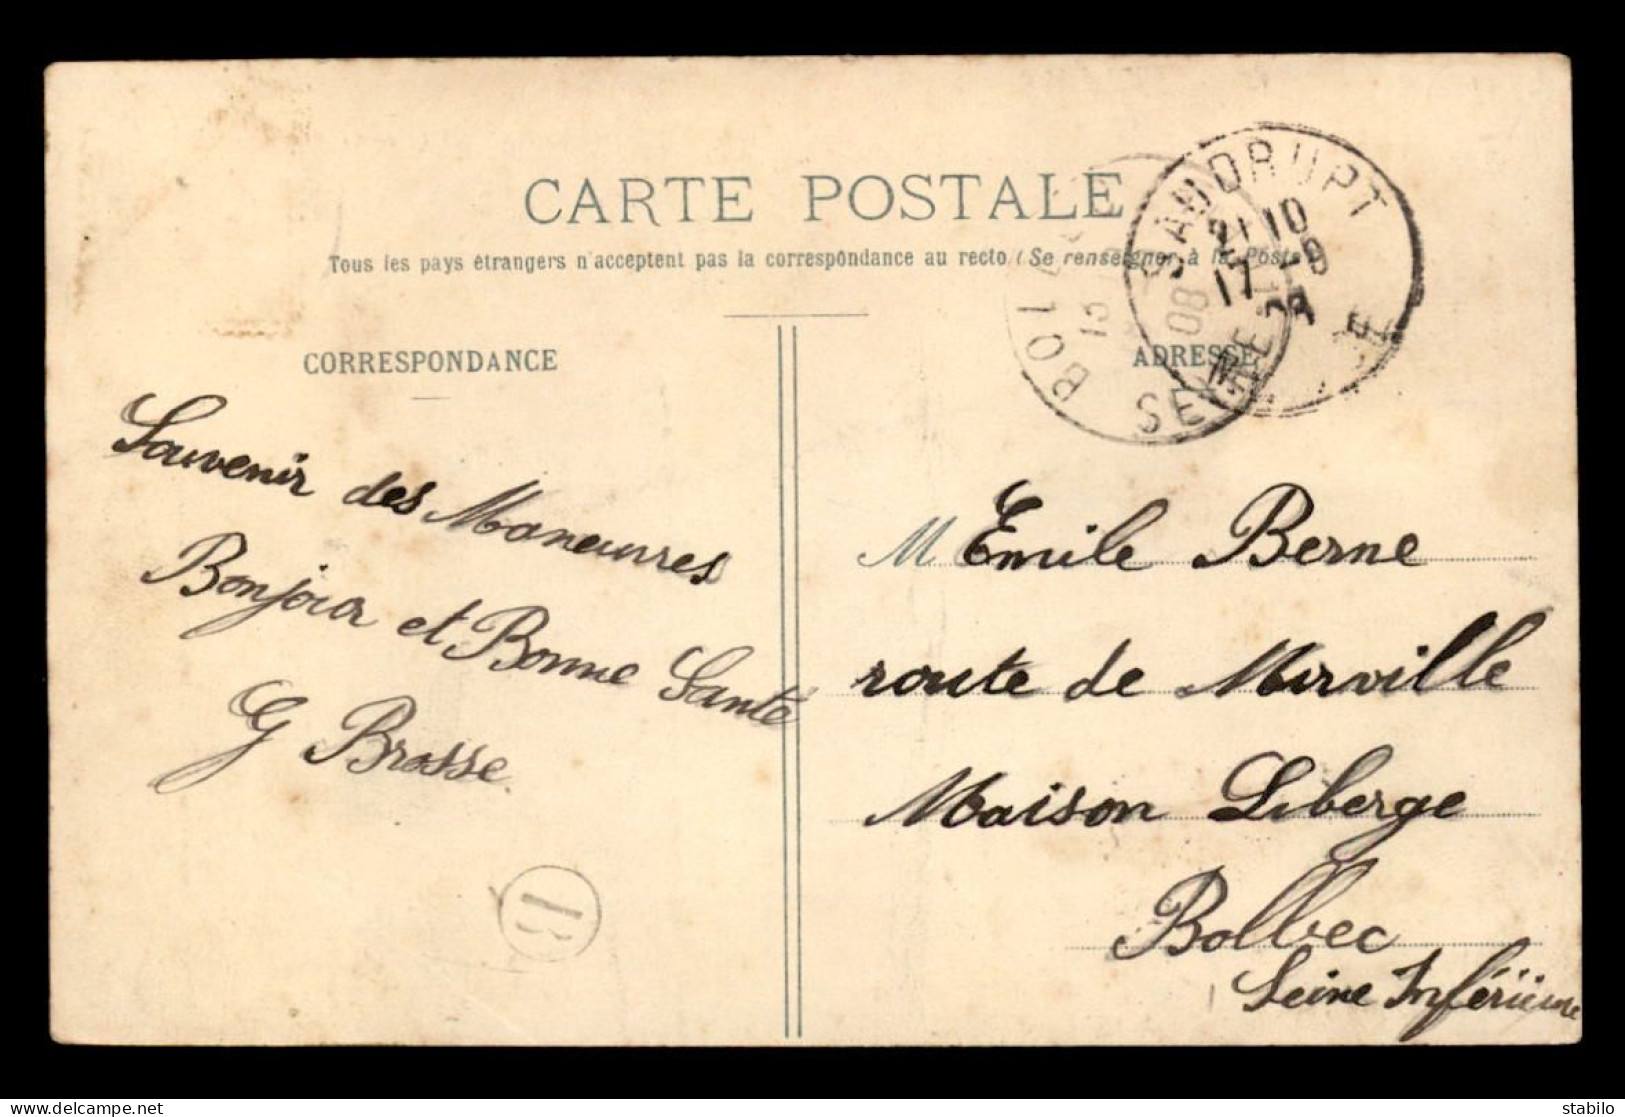 CARTE POSTALE
Tous les pays étrangers n'acceptent pas la correspondance au recto (Se renseigner à la Poste
CORRESPONDANCE
ADRESSE
SAUDRUPT
21 10
17 -9
08
BOLBEC
SEINE
Souvenir des Manœuvres
Bonjour et Bonne Santé
G Brosse
M Emile Berne
route de Mirville
Maison Liberge
Bolbec
Seine Inférieure
delcampe.net
stabilo